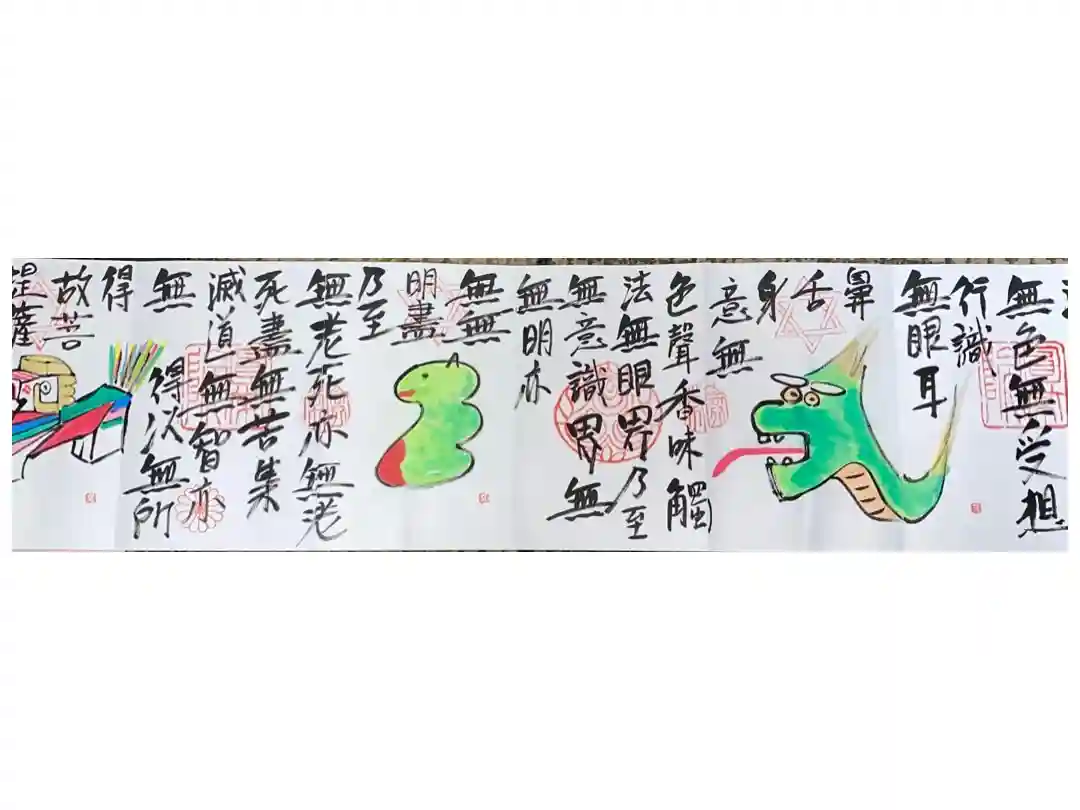 無色無受想
行識
無眼耳
鼻
舌
身
意無
色聲香味觸
法無眼界乃至
無意識界無
無明亦
無無
明盡
乃至
無老死亦無老
死盡無苦集
滅道無智亦
無
得以無所
得
故菩
提薩